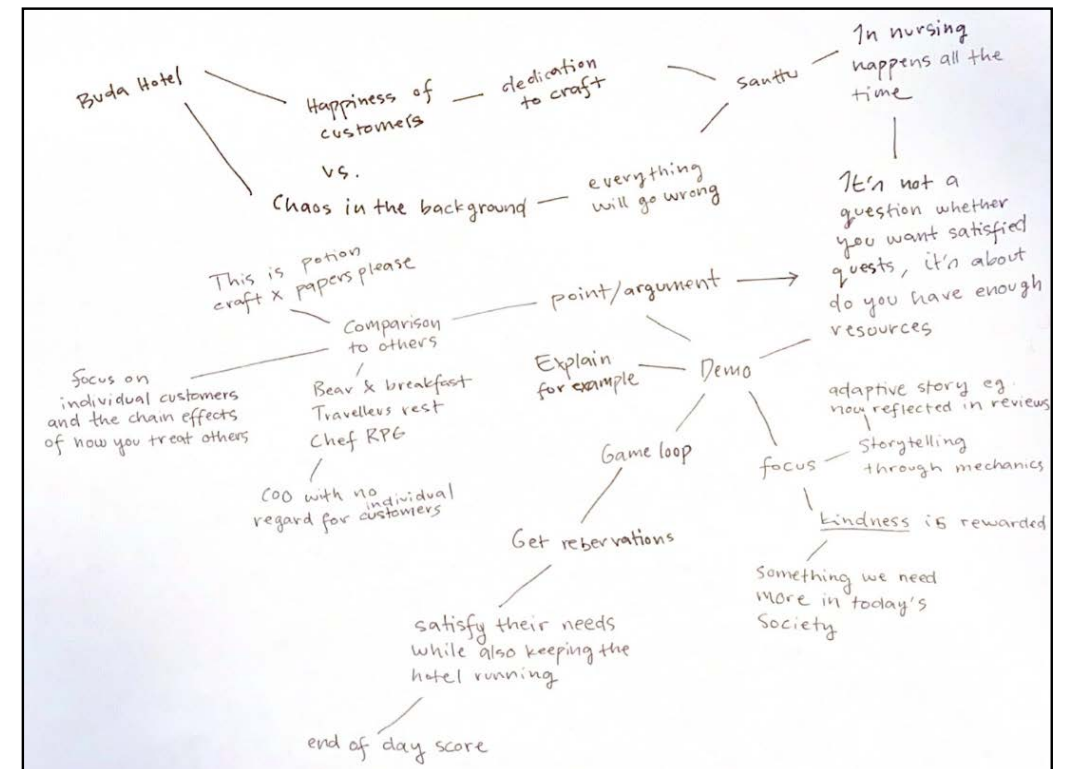 Buda Hotel
Happiness of
customers
dedication
to craft
Santtu
In nursing
happens all the
time
vs.
Chaos in the background
everything
will go wrong
It's not a
question whether
you want satisfied
quests, it's about
do you have enough
resources
This is potion
craft x papers please
point/argument
Comparison
to others
focus on
individual customers
and the chain effects
of how you treat others
Bear & breakfast
Travellers rest
Chef RPG
COO with no
individual
regard for customers
Explain
for example
Demo
adaptive story eg.
how reflected in reviews
Storytelling
through mechanics
focus
kindness is rewarded
Something we need
more in today's
Society
Game loop
Get rebervations
satisfy their needs
while also keeping the
hotel running
end of day score